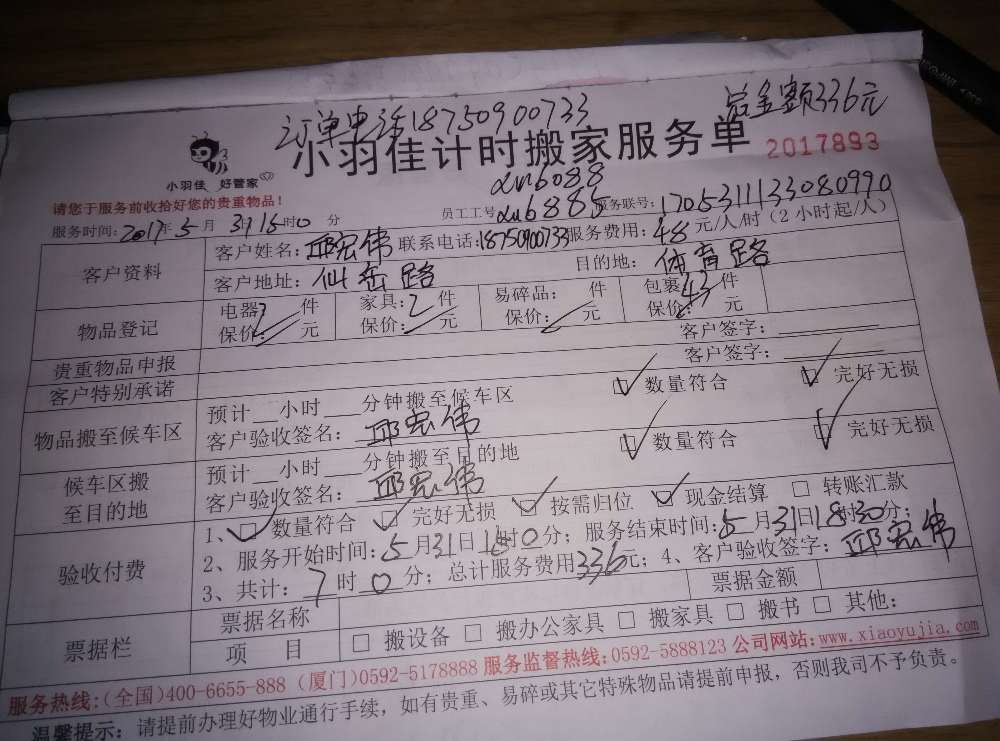 订单电话18750900733 总金额336元
小羽佳计时搬家服务单 2017893
小羽佳 好管家
请您于服务前收拾好您的贵重物品!
服务时间:2017年5月31 15时0分 员工工号 xu6088 xu6885 服务联号:1705311133080990
客户资料 客户姓名:邱宏伟 联系电话:18750900733 服务费用:48元/人/时(2小时起/人)
客户地址:仙岳路 目的地:体育路
物品登记 电器2件 家具:2件 易碎品: 件 包裹43件
保价: 元 保价: 元 保价: 元 保价: 元
贵重物品申报 客户签字:
客户特别承诺 客户签字:
物品搬至候车区 预计__小时___分钟搬至候车区 数量符合 完好无损
客户验收签名:邱宏伟
候车区搬至目的地 预计__小时___分钟搬至目的地 数量符合 完好无损
客户验收签名:邱宏伟
验收付费 1、数量符合 完好无损 按需归位 现金结算 □ 转账汇款
2、服务开始时间:5月31日15时0分;服务结束时间:5月31日18时30分;
3、共计:7时0分;总计服务费用336元;4、客户验收签字:邱宏伟
票据栏 票据名称 票据金额
项 目 □ 搬设备 □ 搬办公家具 □ 搬家具 □ 搬书 □ 其他:
服务热线:(全国)400-6655-888 (厦门)0592-5178888 服务监督热线:0592-5888123 公司网站:www.xiaoyujia.com
温馨提示:请提前办理好物业通行手续,如有贵重、易碎或其它特殊物品请提前申报,否则我司不予负责。